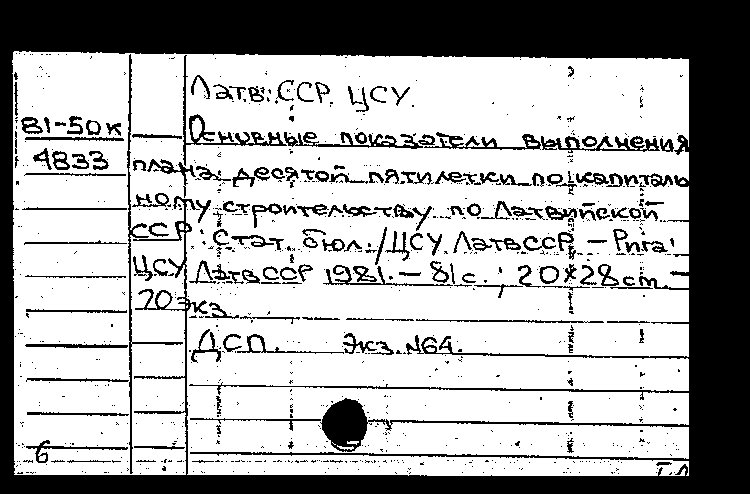 Латв. ССР. ЦСУ.
81-50к Основные показатели выполнения
4833 плана десятой пятилетки по капиталь
ному строительству по Латвийской
ССР: Стат. бюл. / ЦСУ ЛатвССР. — Рига:
ЦСУ ЛатвССР 1981. — 81с.; 20×28 cm. —
70 экз
ДСП. Экз. №64.
6